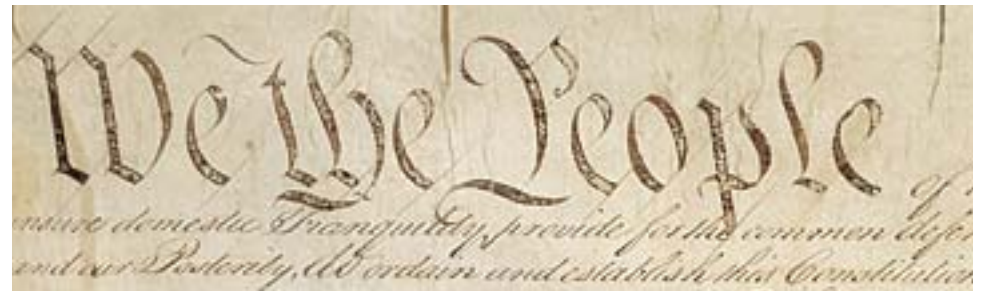 We the People
of
insure domestic Tranquility, provide for the common defen
and our Posterity, do ordain and establish this Constitution